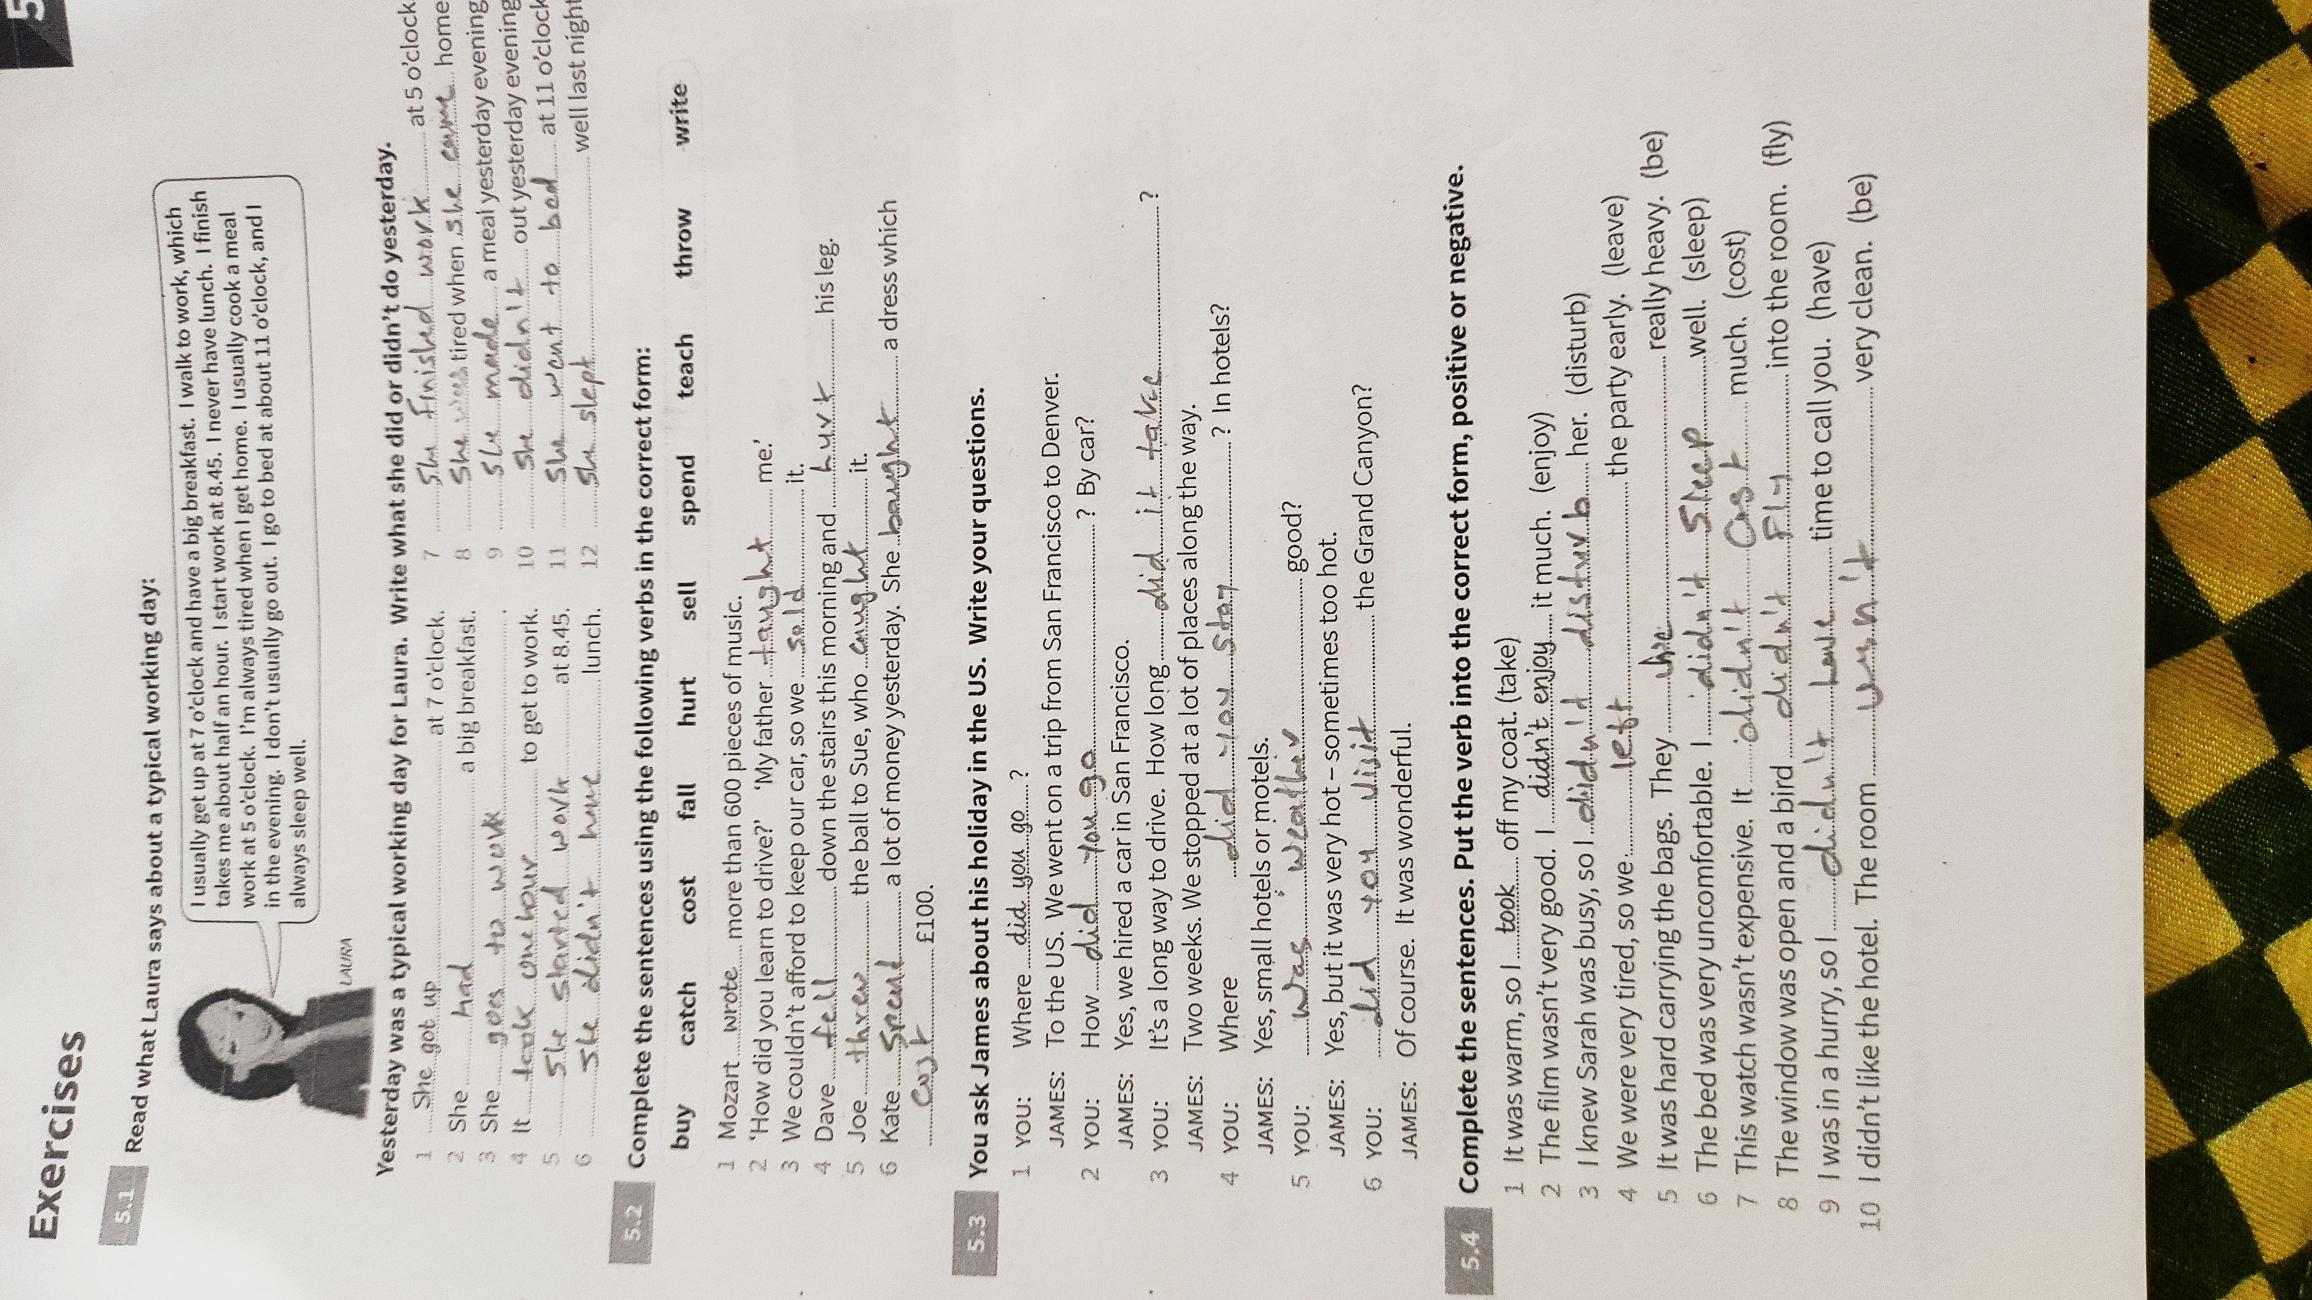 5
Exercises
5.1 Read what Laura says about a typical working day:
I usually get up at 7 o'clock and have a big breakfast. I walk to work, which
takes me about half an hour. I start work at 8.45. I never have lunch. I finish
work at 5 o'clock. I'm always tired when I get home. I usually cook a meal
in the evening. I don't usually go out. I go to bed at about 11 o'clock, and I
always sleep well.
LAURA
Yesterday was a typical working day for Laura. Write what she did or didn't do yesterday.
1 She got up at 7 o'clock.
2 She had a big breakfast.
3 She goes to work .
4 It took one hour to get to work.
5 she started work at 8.45.
6 she didn't have lunch.
7 she finished work at 5 o'clock
8 she was tired when she came home
9 she made a meal yesterday evening
10 she didn't out yesterday evening
11 she went to bed at 11 o'clock
12 she slept well last night
5.2 Complete the sentences using the following verbs in the correct form:
buy catch cost fall hurt sell spend teach throw write
1 Mozart wrote more than 600 pieces of music.
2 'How did you learn to drive?' 'My father taught me.'
3 We couldn't afford to keep our car, so we sold it.
4 Dave fell down the stairs this morning and hurt his leg.
5 Joe threw the ball to Sue, who caught it.
6 Kate spend a lot of money yesterday. She bought a dress which
cost £100.
5.3 You ask James about his holiday in the US. Write your questions.
1 YOU: Where did you go ?
JAMES: To the US. We went on a trip from San Francisco to Denver.
2 YOU: How did you go ? By car?
JAMES: Yes, we hired a car in San Francisco.
3 YOU: It's a long way to drive. How long did it take ?
JAMES: Two weeks. We stopped at a lot of places along the way.
4 YOU: Where did you stay ? In hotels?
JAMES: Yes, small hotels or motels.
5 YOU: was weather good?
JAMES: Yes, but it was very hot – sometimes too hot.
6 YOU: did you visit the Grand Canyon?
JAMES: Of course. It was wonderful.
5.4 Complete the sentences. Put the verb into the correct form, positive or negative.
1 It was warm, so I took off my coat. (take)
2 The film wasn't very good. I didn't enjoy it much. (enjoy)
3 I knew Sarah was busy, so I didn't disturb her. (disturb)
4 We were very tired, so we left the party early. (leave)
5 It was hard carrying the bags. They really heavy. (be)
6 The bed was very uncomfortable. I didn't sleep well. (sleep)
7 This watch wasn't expensive. It didn't cost much. (cost)
8 The window was open and a bird didn't fly into the room. (fly)
9 I was in a hurry, so I didn't have time to call you. (have)
10 I didn't like the hotel. The room wasn't very clean. (be)